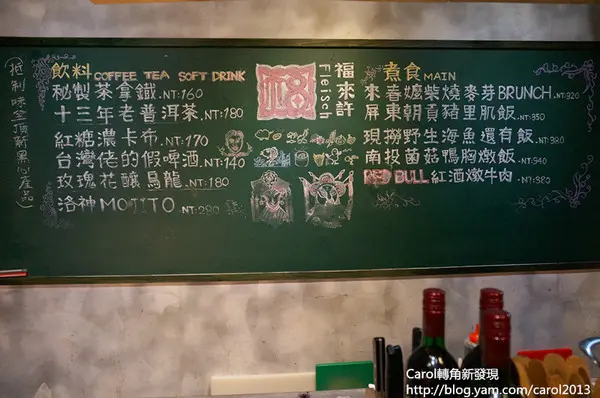 拒制味全頂新黑心產品
飲料 COFFEE TEA SOFT DRINK
秘製茶拿鐵.NT:160
十三年老普洱茶.NT:180
紅糖濃卡布.NT:170
台灣佬的假啤酒.NT:140
玫瑰花釀烏龍.NT:180
洛神MOJITO.NT:280
福來許
Fleisch
煮食 MAIN
來春嬤柴燒麥芽BRUNCH.NT:320
屏東朝貢豬里肌飯.NT:350
現撈野生海魚還有飯.NT:380
南投菌菇鴨胸燉飯.NT:340
RED BULL紅酒燉牛肉.NT:380
Carol轉角新發現
http://blog.yam.com/carol2013